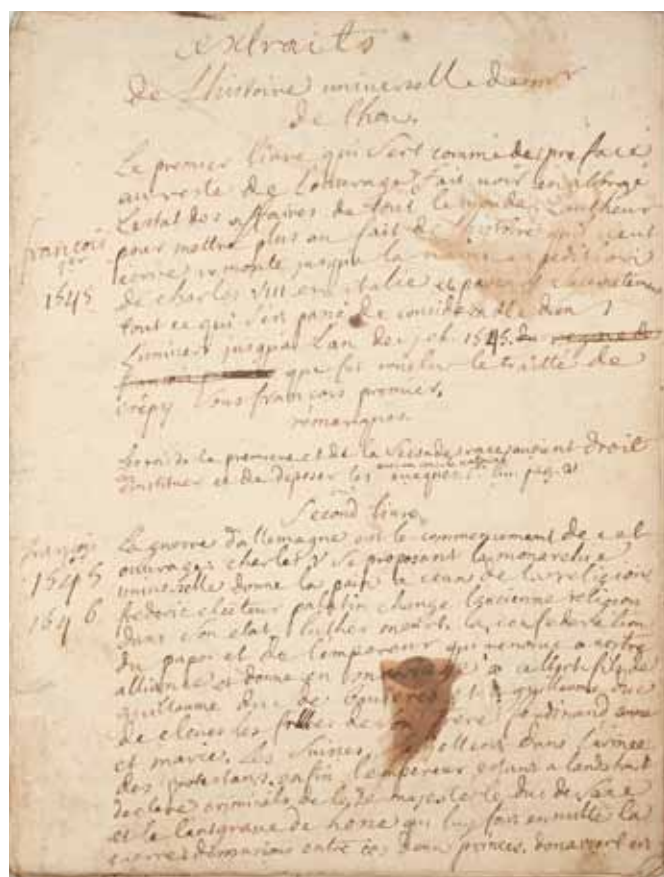 extraits
de Lhistoire universelle de mr
de thou.
Le premier livre qui sert comme de preface
au reste de Louvrage fait voir en abbregé
Lestat des affaires de tout le monde. Lautheur
pour mettre plus au fait de Lhistoire quil veut
françois
1er
1545
ecrire remonte jusqua la expedition
de charles VIII en italie et
tout ce qui sest passé de considerable dans
Lunivers jusqua Lan de j.ch. 1545. du regne de
françois premier que fut conclu le traitté de
crépy sous françois premier.
remarques
Les rois de la premiere et de la seconde race avoient droit
dinstituer et de deposer les evesques 1. liv. pag.
Second livre
françois
1er
1545
1546
La guerre dallemagne est le commencement de cet
ouvrage. charles V se proposant la monarchie
universelle donne la paix a ceux de la religion
frederic electeur palatin change Lancienne religion
dans son etat. luther meurt. la confederation
du pape et de lempereur qui renonce a nostre
alliance et donne en mariage a albert fils de
guillaume duc de et a guillaume duc
de cleves les filles de son frere ferdinand anne
et marie. Les suisses dans larmee
des protestans. enfin lempereur estant a landshut
declare criminels de leze majesté le duc de saxe
et le lantgrave de hesse qui luy font en suitte la
guerre. demarions entre ces deux princes.